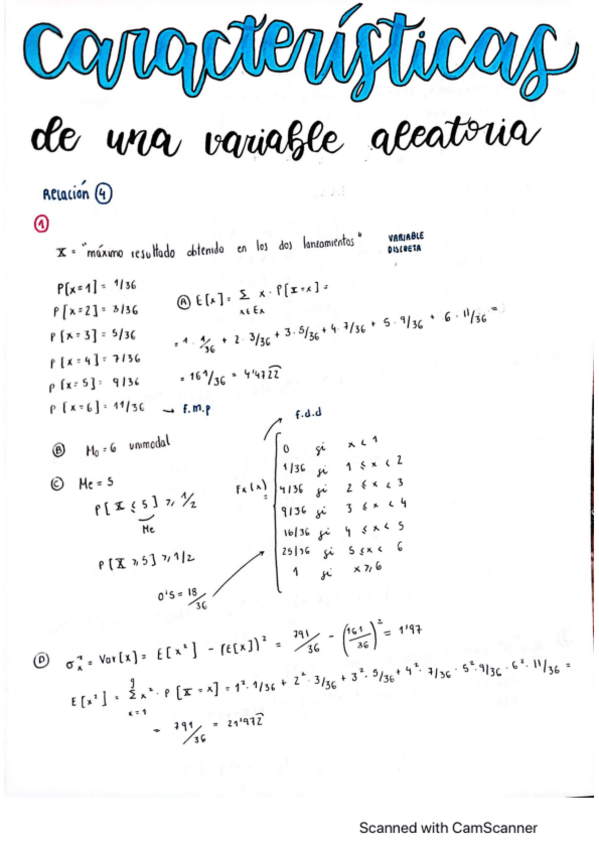 características
de una variable aleatoria
Relación ④
①
X = "máximo resultado obtenido en los dos lanzamientos" VARIABLE DISCRETA
P[X=1] = 1/36
P[X=2] = 3/36
P[X=3] = 5/36
P[X=4] = 7/36
P[X=5] = 9/36
P[X=6] = 11/36 → f.m.p
Ⓐ E[X] = Σ x · P[X=x] =
x∈Ex
= 1 · 1/36 + 2 · 3/36 + 3 · 5/36 + 4 · 7/36 + 5 · 9/36 + 6 · 11/36 =
= 161/36 = 4'4722
Ⓑ Mo = 6 unimodal
Ⓒ Me = 5
P[X ≤ 5] ≥ 1/2
Me
P[X ≥ 5] ≥ 1/2
0'5 = 18/36
f.d.d
Fx(x) =
0 si x < 1
1/36 si 1 ≤ x < 2
4/36 si 2 ≤ x < 3
9/36 si 3 ≤ x < 4
16/36 si 4 ≤ x < 5
25/36 si 5 ≤ x < 6
1 si x ≥ 6
Ⓓ σ²x = Var[X] = E[x²] - (E[x])² = 791/36 - (161/36)² = 1'97
E[x²] = Σ x² · P[X=x] = 1² · 1/36 + 2² · 3/36 + 3² · 5/36 + 4² · 7/36 · 5² · 9/36 · 6² · 11/36 =
x=1
= 791/36 = 21'972
Scanned with CamScanner